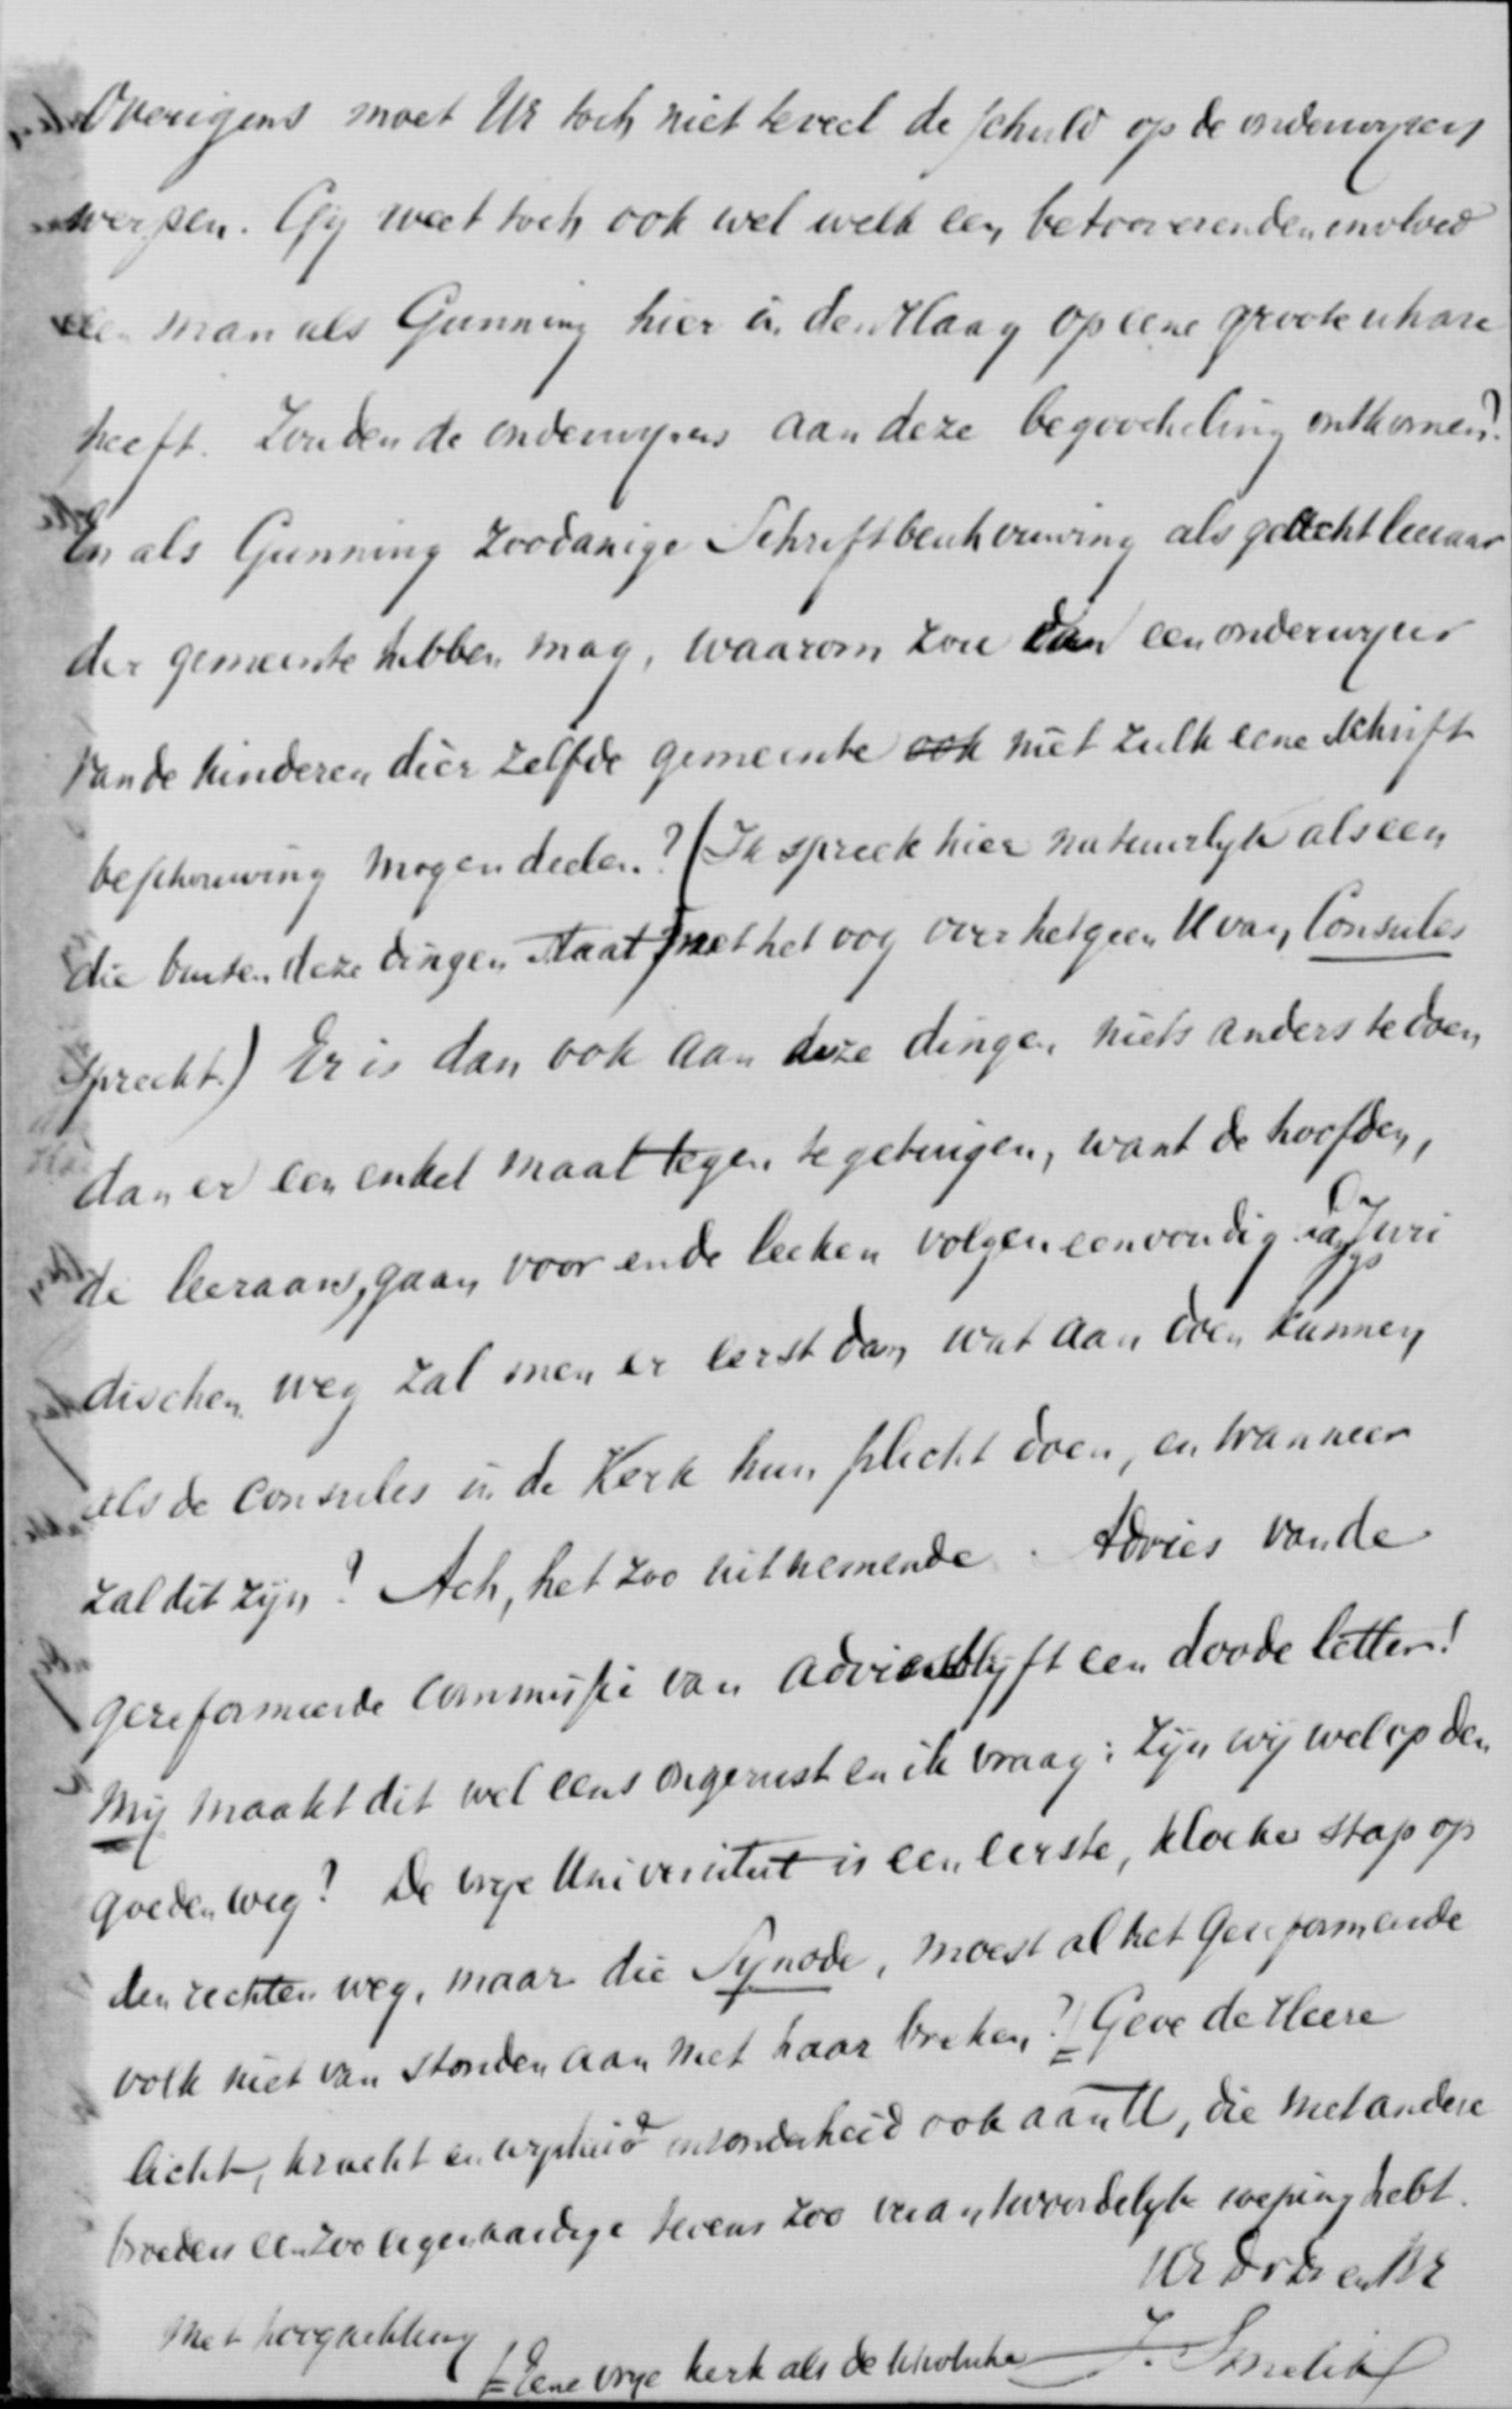 Overigens moet UE toch niet teveel de schuld op de onderwijzers
werpen. Gij weet toch ook wel welk een betooverenden invloed
een man als Gunning hier in den Haag op eene groote schare
heeft. Zouden de onderwijzers aan deze begoocheling ontkomen?
En als Gunning zoodanige Schriftbeschouwing als geacht leeraar
der gemeente hebben mag, waarom zou dan een onderwijzer
van de kinderen dier zelfde gemeente ook niet zulk eene Schrift
beschouwing mogen deelen? (Ik spreek hier natuurlyk als een
die buiten deze dingen staat met het oog over hetgeen U van Consules
spreekt.) Er is dan ook aan deze dingen niets anders te doen
dan er een enkel maal tegen te getuigen, want de hoofden,
de leeraars, gaan voor en de leeken volgen eenvoudig. Op Juri
dischen weg zal men er eerst dan wat aan doen kunnen
als de consules in de Kerk hun plicht doen, en wanneer
zal dit zijn? Ach, het zoo uitnemende Advies van de
gereformeerde commissie van advies blyft een doode letter!
Mij maakt dit wel eens ongerust en ik vraag: zijn wij wel op den
goeden weg? De vrye Universiteit is een eerste, kloeke stap op
den rechten weg, maar die Synode, moest al het Gereformeerde
volk niet van stonden aan met haar breken? Geve de Heere
licht, kracht en wysheid inzonderheid ook aan U, die met andere
broeders een zoo eigenaardige tevens zoo verantwoordelyke roeping hebt.
UE Dv Dr en Br
Met hoogachting J. Smelik
Eene vrye kerk als de